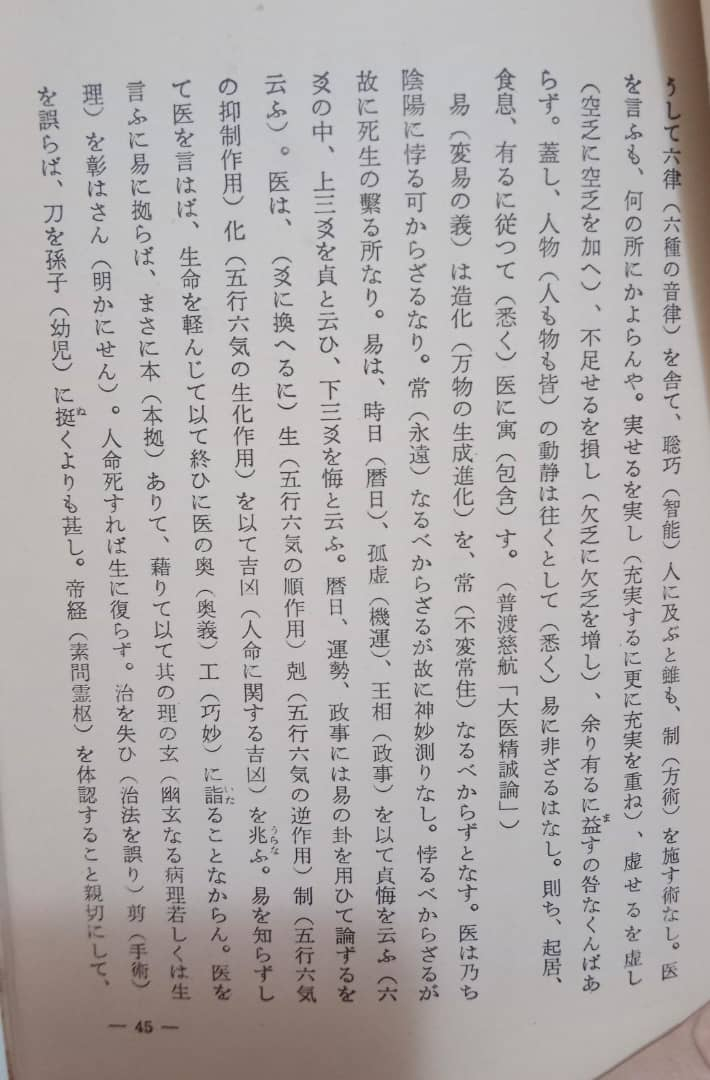 うして六律（六種の音律）を舎て、聡巧（智能）人に及ぶと雖も、制（方術）を施す術なし。医
を言ふも、何の所にかよらんや。実せるを実し（充実するに更に充実を重ね）、虚せるを虚し
（空乏に空乏を加へ）、不足せるを損し（欠乏に欠乏を増し）、余り有るに益すの咎なくんばあ
らず。蓋し、人物（人も物も皆）の動静は往くとして（悉く）易に非ざるはなし。則ち、起居、
食息、有るに従つて（悉く）医に寓（包含）す。（普渡慈航「大医精誠論」）
易（変易の義）は造化（万物の生成進化）を、常（不変常住）なるべからずとなす。医は乃ち
陰陽に悖る可からざるなり。常（永遠）なるべからざるが故に神妙測りなし。悖るべからざるが
故に死生の繫る所なり。易は、時日（暦日）、孤虚（機運）、王相（政事）を以て貞悔を云ふ（六
爻の中、上三爻を貞と云ひ、下三爻を悔と云ふ。暦日、運勢、政事には易の卦を用ひて論ずるを
云ふ）。医は、（爻に換へるに）生（五行六気の順作用）剋（五行六気の逆作用）制（五行六気
の抑制作用）化（五行六気の生化作用）を以て吉凶（人命に関する吉凶）を兆ふ。易を知らずし
て医を言はば、生命を軽んじて以て終ひに医の奥（奥義）工（巧妙）に詣ることなからん。医を
言ふに易に拠らば、まさに本（本拠）ありて、藉りて以て其の理の玄（幽玄なる病理若しくは生
理）を彰はさん（明かにせん）。人命死すれば生に復らず。治を失ひ（治法を誤り）剪（手術）
を誤らば、刀を孫子（幼児）に挺くよりも甚し。帝経（素問霊枢）を体認すること親切にして、
— 45 —